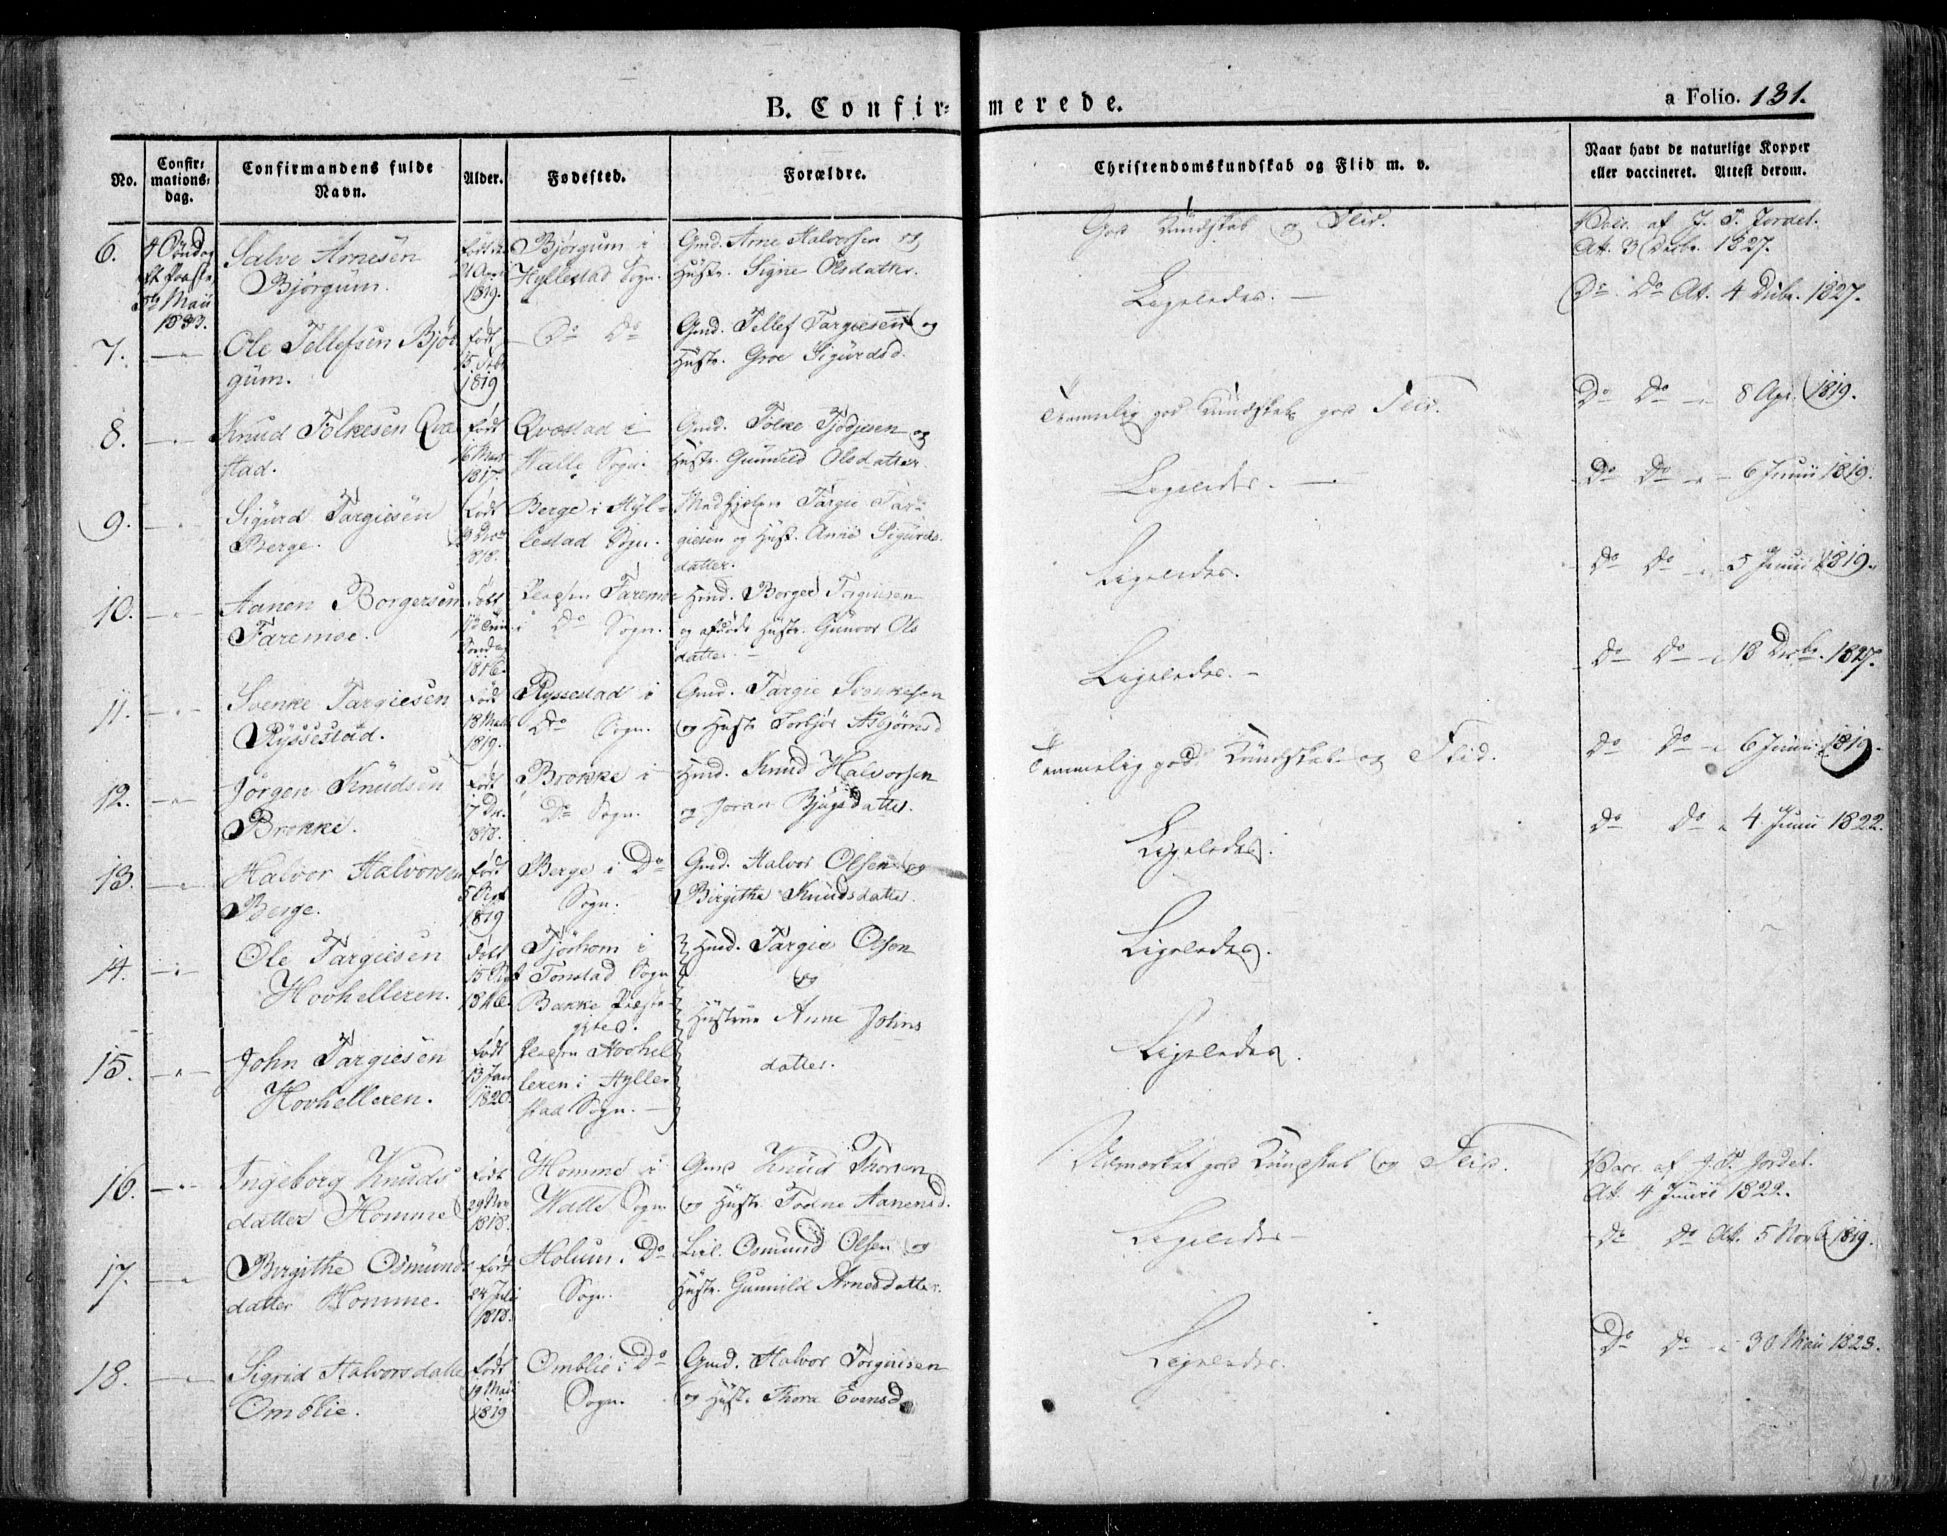 B. Confirmerede.
a Folio. 131.
No.
Confirmationsdag.
Confirmandens fulde Navn.
Alder.
Fødested.
Forældre.
Christendomskundskab og Flid m. v.
Naar havt de naturlige Kopper
eller vaccineret. Attest derom.
6.
4 Søndag
Maii
1833.
Salve Arnesen
Bjørgum.
født
1819.
Bjørgum i
Hyllestad Sogn.
Gmd. Arne Halvorsen og
Hustr. Signe Olsdatter.
God Kundskab og Flid.
af J. T. Jordet.
At. 3 Decbr. 1827.
7.
Ole Tellefsen Bjør
gum.
født
1819
Do Do
Gmd. Tellef Targiesen og
Hustr. Groe Sigurdsd.
Ligeledes.
Do Do At. 4 Decbr. 1827.
8.
Knud Folkesen Qve
stad.
født
1817.
Qvæstad i
Walle Sogn.
Gmd. Folke Tjodjesen og
Hustr. Gunnild Olsdatter
Temmelig god Kundskab god Flid.
Do Do 8 Apr. 1819.
9.
Sigurd Targiesen
Berge.
født
1818.
Berge i Hyl-
lestad Sogn.
Medhjelper Targie Tar-
giesen og Hust. Anne Sigurds
datter.
Ligeledes.
Do Do 6 Junii 1819.
10.
Aanen Borgersen
Faremoe.
født
1816.
Pladsen Faremoe
i Do Sogn.
Hmd. Borger Torgiusen
og afdøde Hustr. Gunvor Ols
datter.
Ligeledes.
Do Do 5 Junii 1819.
11.
Svenke Targiesen
Ryssestad.
født
18 Mai
1819.
Ryssestad i
Do Sogn.
Gmd. Targie Svenkesen
og Hustr Torbjør Asbjørnsd
Ligeledes.
Do Do 18 Decbr. 1827.
12.
Jørgen Knudsen
Brokke.
født
1818.
Brokke i
Do Sogn.
Hmd. Knud Halvorsen
og Joran Bjugsdatter.
Temmelig god Kundskab og Flid.
Do Do 6 Junii 1819.
13.
Halvor Halvorsen
Berge.
født
1819
Berge i Do
Sogn.
Gmd. Halvor Olsen og
Birgithe Knudsdatter.
Ligeledes.
Do Do 4 Junii 1822.
14.
Ole Targiesen
Hovhelleren.
født
1816.
Tjørhom i
Tonstad Sogn
Bakke Præste-
gjeld.
Hmd. Targie Olsen
og
Hustrue Anne Johns
datter.
Ligeledes.
15.
John Targiesen
Hovhelleren.
født
13 Jan
1820.
Pladsen Hovhel
leren i Hylle-
stad Sogn.
Ligeledes.
16.
Ingeborg Knuds
datter Homme
født
29 Nov
1818.
Homme i
Walle Sogn.
Gmd Knud Thorsen
og Hustr Todne Aanensd.
Udmærket god Kundskab og Flid.
Vacc. af J. T. Jordet.
At. 4 Junii 1822.
17.
Birgithe Osmunds
datter Homme.
født
24 Juli
1818.
Holum. Do
Sogn.
Osmund Olsen og
Hustr. Gunnild Arnesdatter.
Ligeledes
Do Do At. 5 Novb 1819.
18.
Sigrid Halvorsdatter
Omblie.
født
19 Mai
1819
Omblie i Do
Sogn.
Gmd. Halvor Torgiusen
og Hust. Thora Evensd.
Ligeledes.
Do Do 30 Maii 1823.